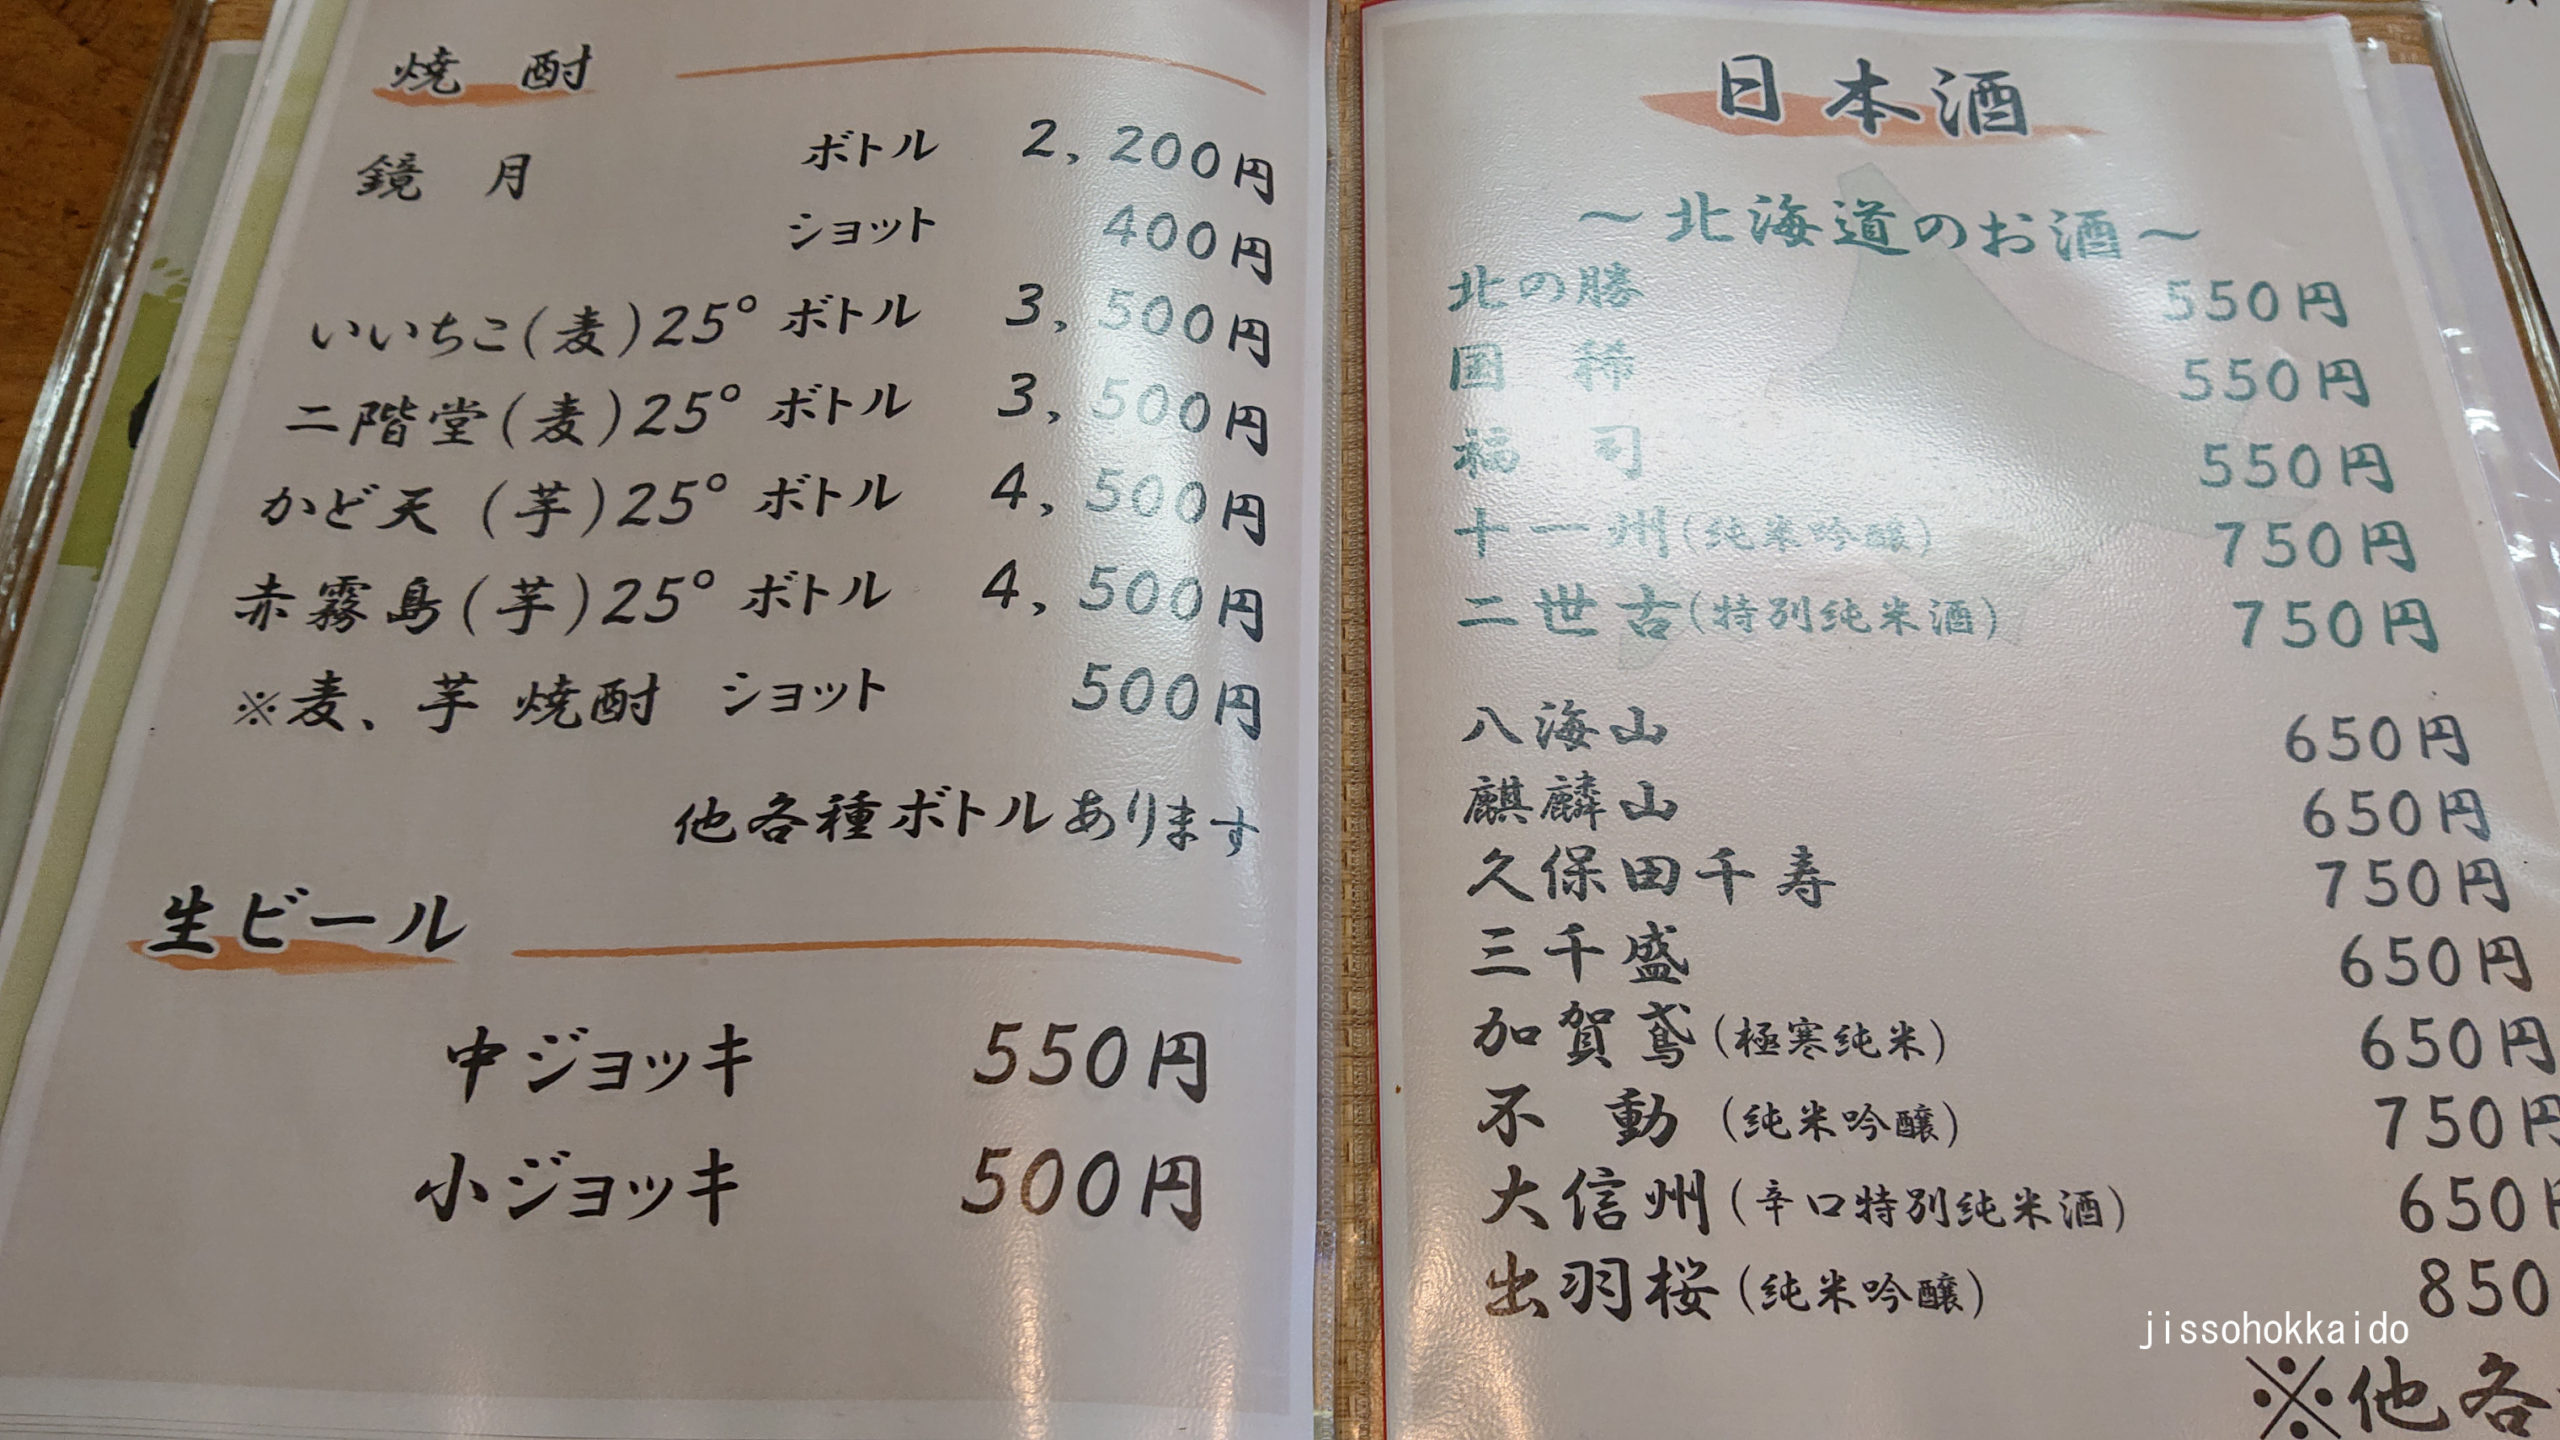 焼 酎
鏡 月 ボトル 2,200円
ショット 400円
いいちこ(麦)25° ボトル 3,500円
二階堂(麦)25° ボトル 3,500円
かど天 (芋)25° ボトル 4,500円
赤霧島(芋)25° ボトル 4,500円
※麦、芋 焼酎 ショット 500円
他各種ボトルあります
生ビール
中ジョッキ 550円
小ジョッキ 500円
日本酒
～北海道のお酒～
北の勝 550円
国 稀 550円
福 司 550円
十一州(純米吟醸) 750円
二世古(特別純米酒) 750円
八海山 650円
麒麟山 650円
久保田千寿 750円
三千盛 650円
加賀鳶(極寒純米) 650円
不 動 (純米吟醸) 750円
大信州(辛口特別純米酒) 650円
出羽桜(純米吟醸) 850
jissohokkaido
※他各